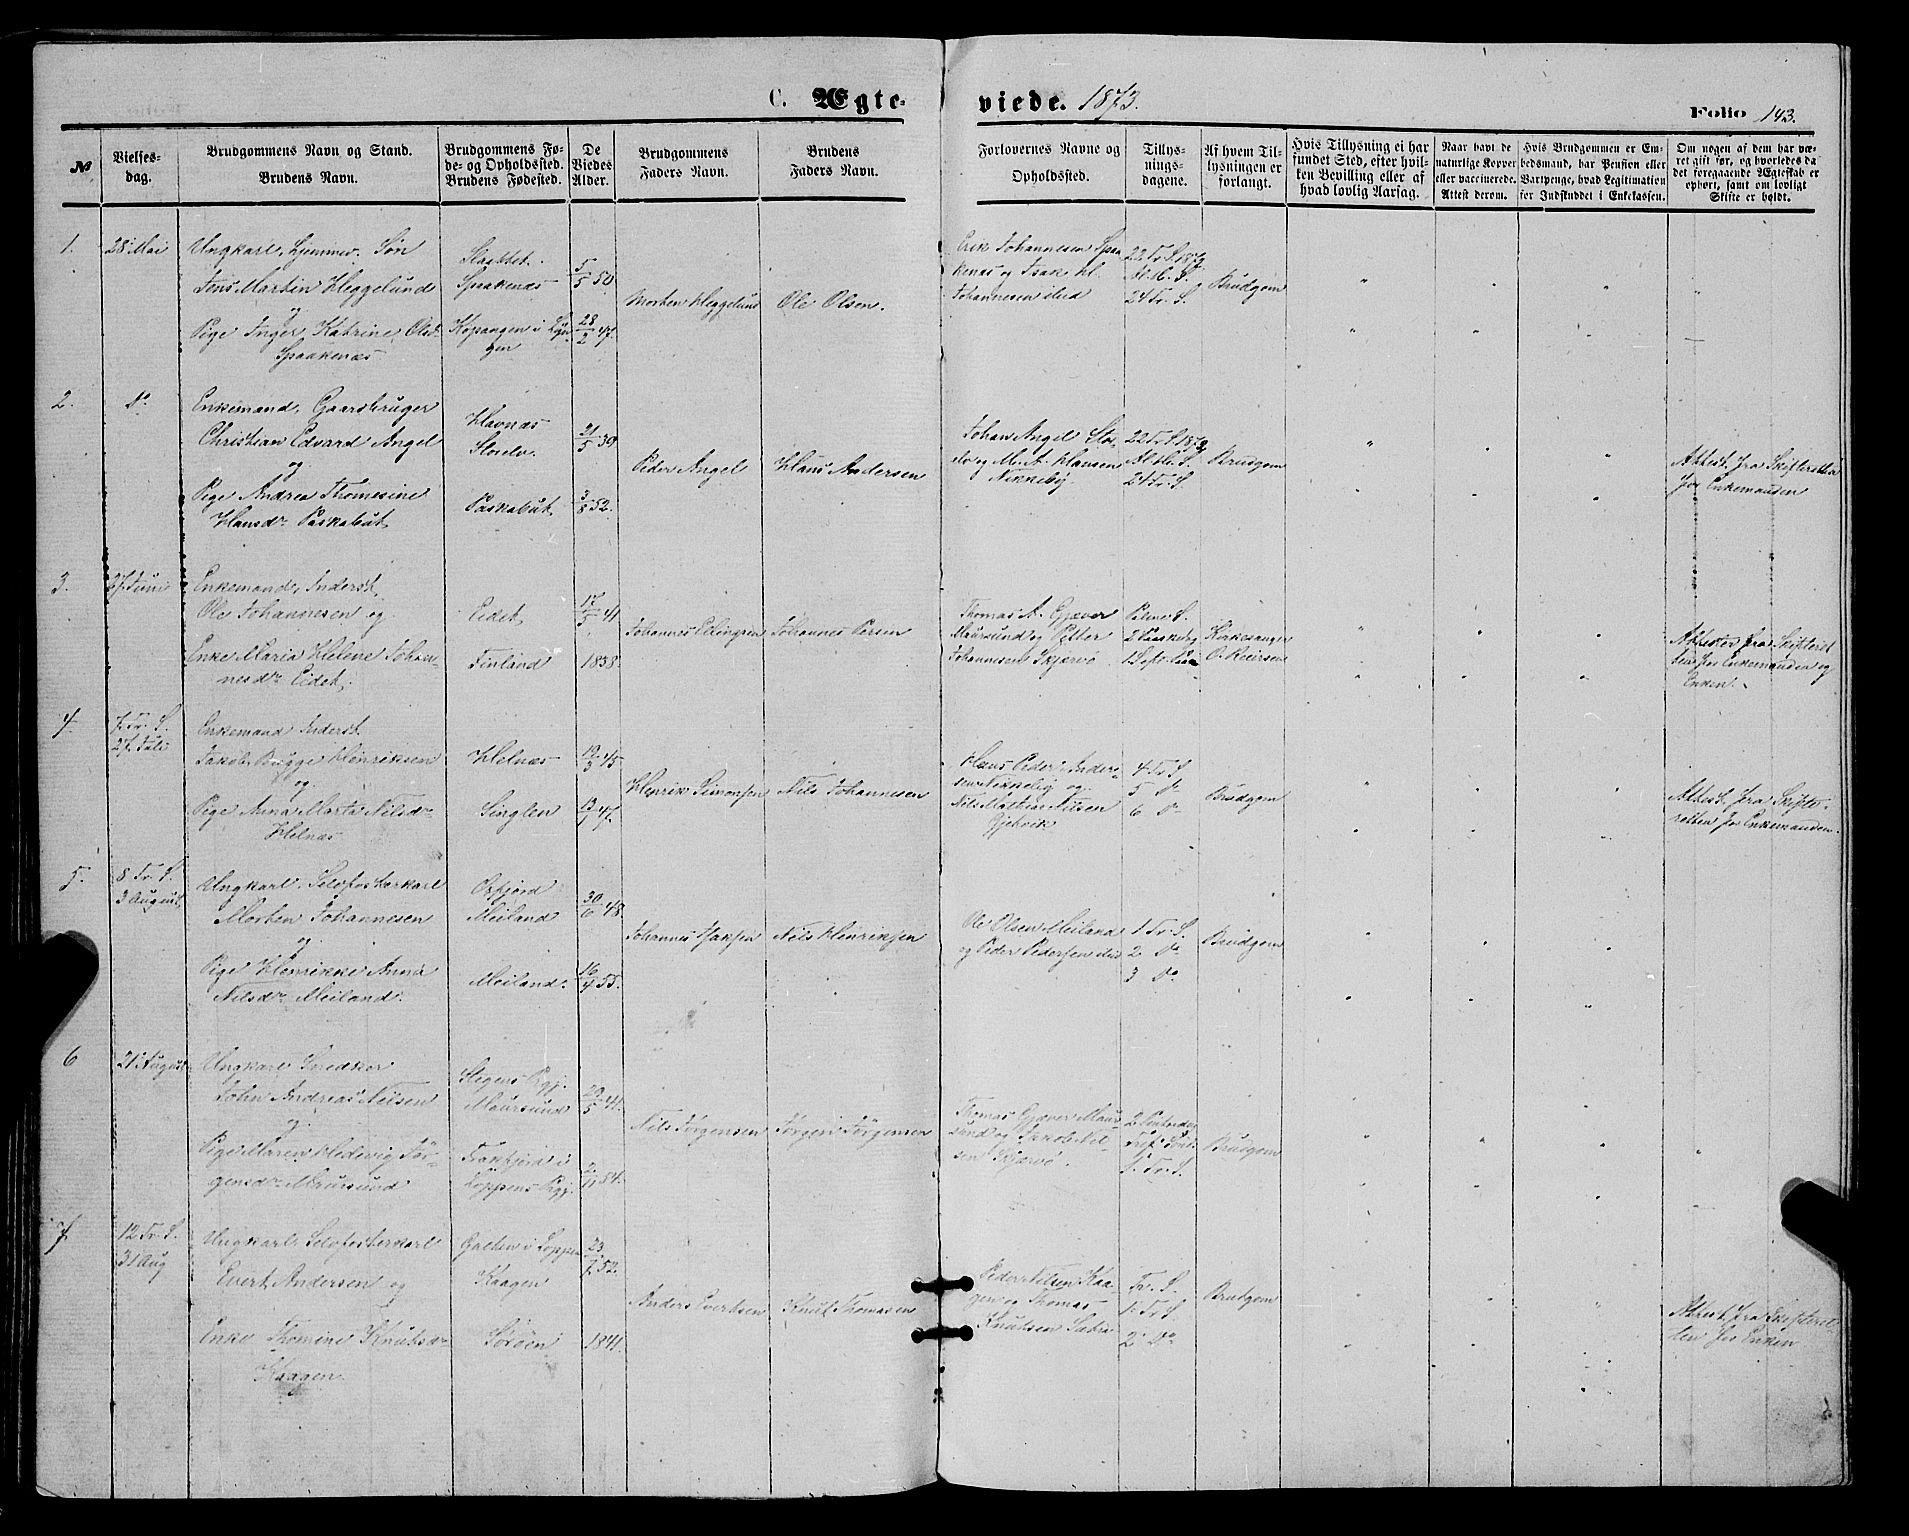 C. Ægte-
viede. 1873.
Folio 143.
№
Vielses-
dag.
Brudgommens Navn og Stand.
Brudens Navn.
Brudgommens Fø-
de- og Opholdssted.
Brudens Fødested.
De
Viedes
Alder.
Brudgommens
Faders Navn.
Brudens
Faders Navn.
Forlovernes Navne og
Opholdssted.
Tillys-
nings-
dagene.
Af hvem Til-
lysningen er
forlangt.
Hvis Tillysning ei har
fundet Sted, efter hvil-
ken Bevilling eller af
hvad lovlig Aarsag.
Naar havt de
naturlige Kopper
eller vaccinerede.
Attest derom.
Hvis Brudgommen er Em-
bedsmand, har Pension eller
Vartpenge, hvad Legitimation
for Indskuddet i Enkekassen.
Om nogen af dem har væ-
ret gift før, og hvorledes da
det foregaaende Ægteskab er
ophørt, samt om lovligt
Skifte er holdt.
1.
28 Mai
Ungkarl, hjemmev. Søn
Jens Martin Heggelund
og
Pige Inger Katrine Olsd.
Spaakenæs
Slaattet.
Spaakenæs
Kopangen i Lyn-
gen
5/5 50
28/2 47.
Morten Heggelund
Ole Olsen.
Erik Johannesen Spaa-
kenæs og Isak
Johannesen
22 Tr. S. 1872
Al. H. S.
24 Tr. S.
Brudgom
2.
Do
Enkemand, Gaardbruger
Christian Edvard Angel
og
Pige Andrea Thomesine
Hansdr Paskabut
Havnæs
Storelv.
Paskabut
21/5 39
3/8 52.
Peder Angel
Hans Andersen
Johan Angel Stor-
elv og M. A. Hansen
Nikkeby
22 Tr. S. 1872
Al. H. S.
24 Tr. S.
Brudgom
Attest fra Skifteretten
for Enkemanden
3.
27 Juni
Enkemand, Inderst
Ole Johannesen og
Enke Maria Helene Johan-
nesdr Eidet.
Eidet
Finland
17/5 41
1838.
Johannes Ellingsen
Johannes Persen
Thomas A. Gjæver
Maursund og Petter
Johannesen Skjærvø
Palme S.
2 Paaskedag
Kirkesanger
O. Reiersen
Attester fra Skifteret-
ten for Enkemanden og
Enken.
4.
7. Tr. S.
27 Juli
Enkemand Inderst
Jakob Bugge Henriksen
og
Pige Anna Marta Nilsdr
Helnæs
Helnæs
Singlen
19/3 45
13/7 47.
Henrik Simonsen
Nils Johannesen
Hans Peder Ander-
sen Nikkeby og
Nils Mathias Nilsen
Gjøvik
4 Tr. S
5 Do
6 Do
Brudgom
Attest fra Skifte-
retten for Enkemanden.
5.
8 Tr. S.
3 August
Ungkarl, Selvfosterkarl
Morten Johannesen
og
Pige Henrikke Anna
Nilsdr Meiland.
Oxfjord
Meiland
Meiland.
30/6 48.
16/4 55.
Johannes Isaksen
Nils Henriksen
Ole Olsen Meiland
og Peder Pedersen
1 Tr. S.
2 Do
3 Do
Brudgom
6
21 August
Ungkarl Snedker
John Andreas Nilsen
og
Pige Maren Hedevig Jør-
gensdr Maursund
Stegens Prgj.
Maursund
Frakfjord i
Loppens Prgj.
29/5 41.
2/11 54.
Nils Jørgensen
Jørgen Jørgensen
Thomas Gjæver Maur-
sund og Jakob Nil-
sen Skjærvø.
2 Pintsedag
Tref. Sønd.
1. Tr. S.
Brudgom
7.
12 Tr. S.
31 Aug
Ungkarl, Selvfosterkarl
Evert Andersen og
Enke Thomine Knutsdr
Kaagen.
i Loppen
Kaagen
Sørøen
23/7 52.
1841.
Anders Evertsen
Knut Thomasen
Peder Nilsen Kaa-
gen og Thomas
Knutsen
Tr. S.
1. Tr. S
2 Do
Brudgom
Attest fra Skifteret-
ten for Enken